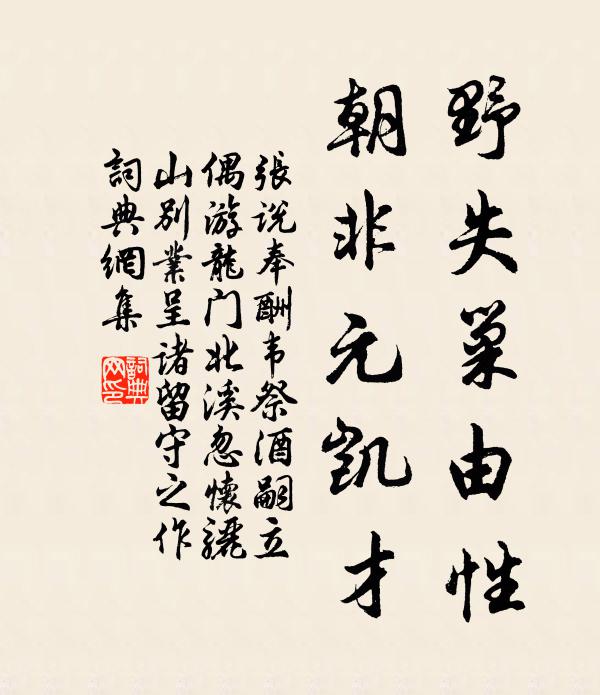 野失巢由性
朝非元凯才
張说奉酬韦祭酒嗣立
偶游龍门北溪忽懷驪
山别業呈诸留守之作
詞典網集
詞典
网印